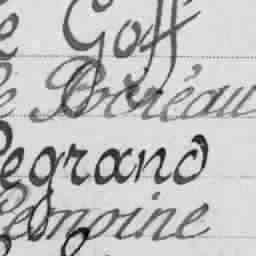 Le Goff
Le Boréau
Legrand
Lemoine